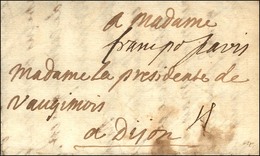 a Madame
franc po paris
Madame la presidente de
Vaugimois
a Dijon